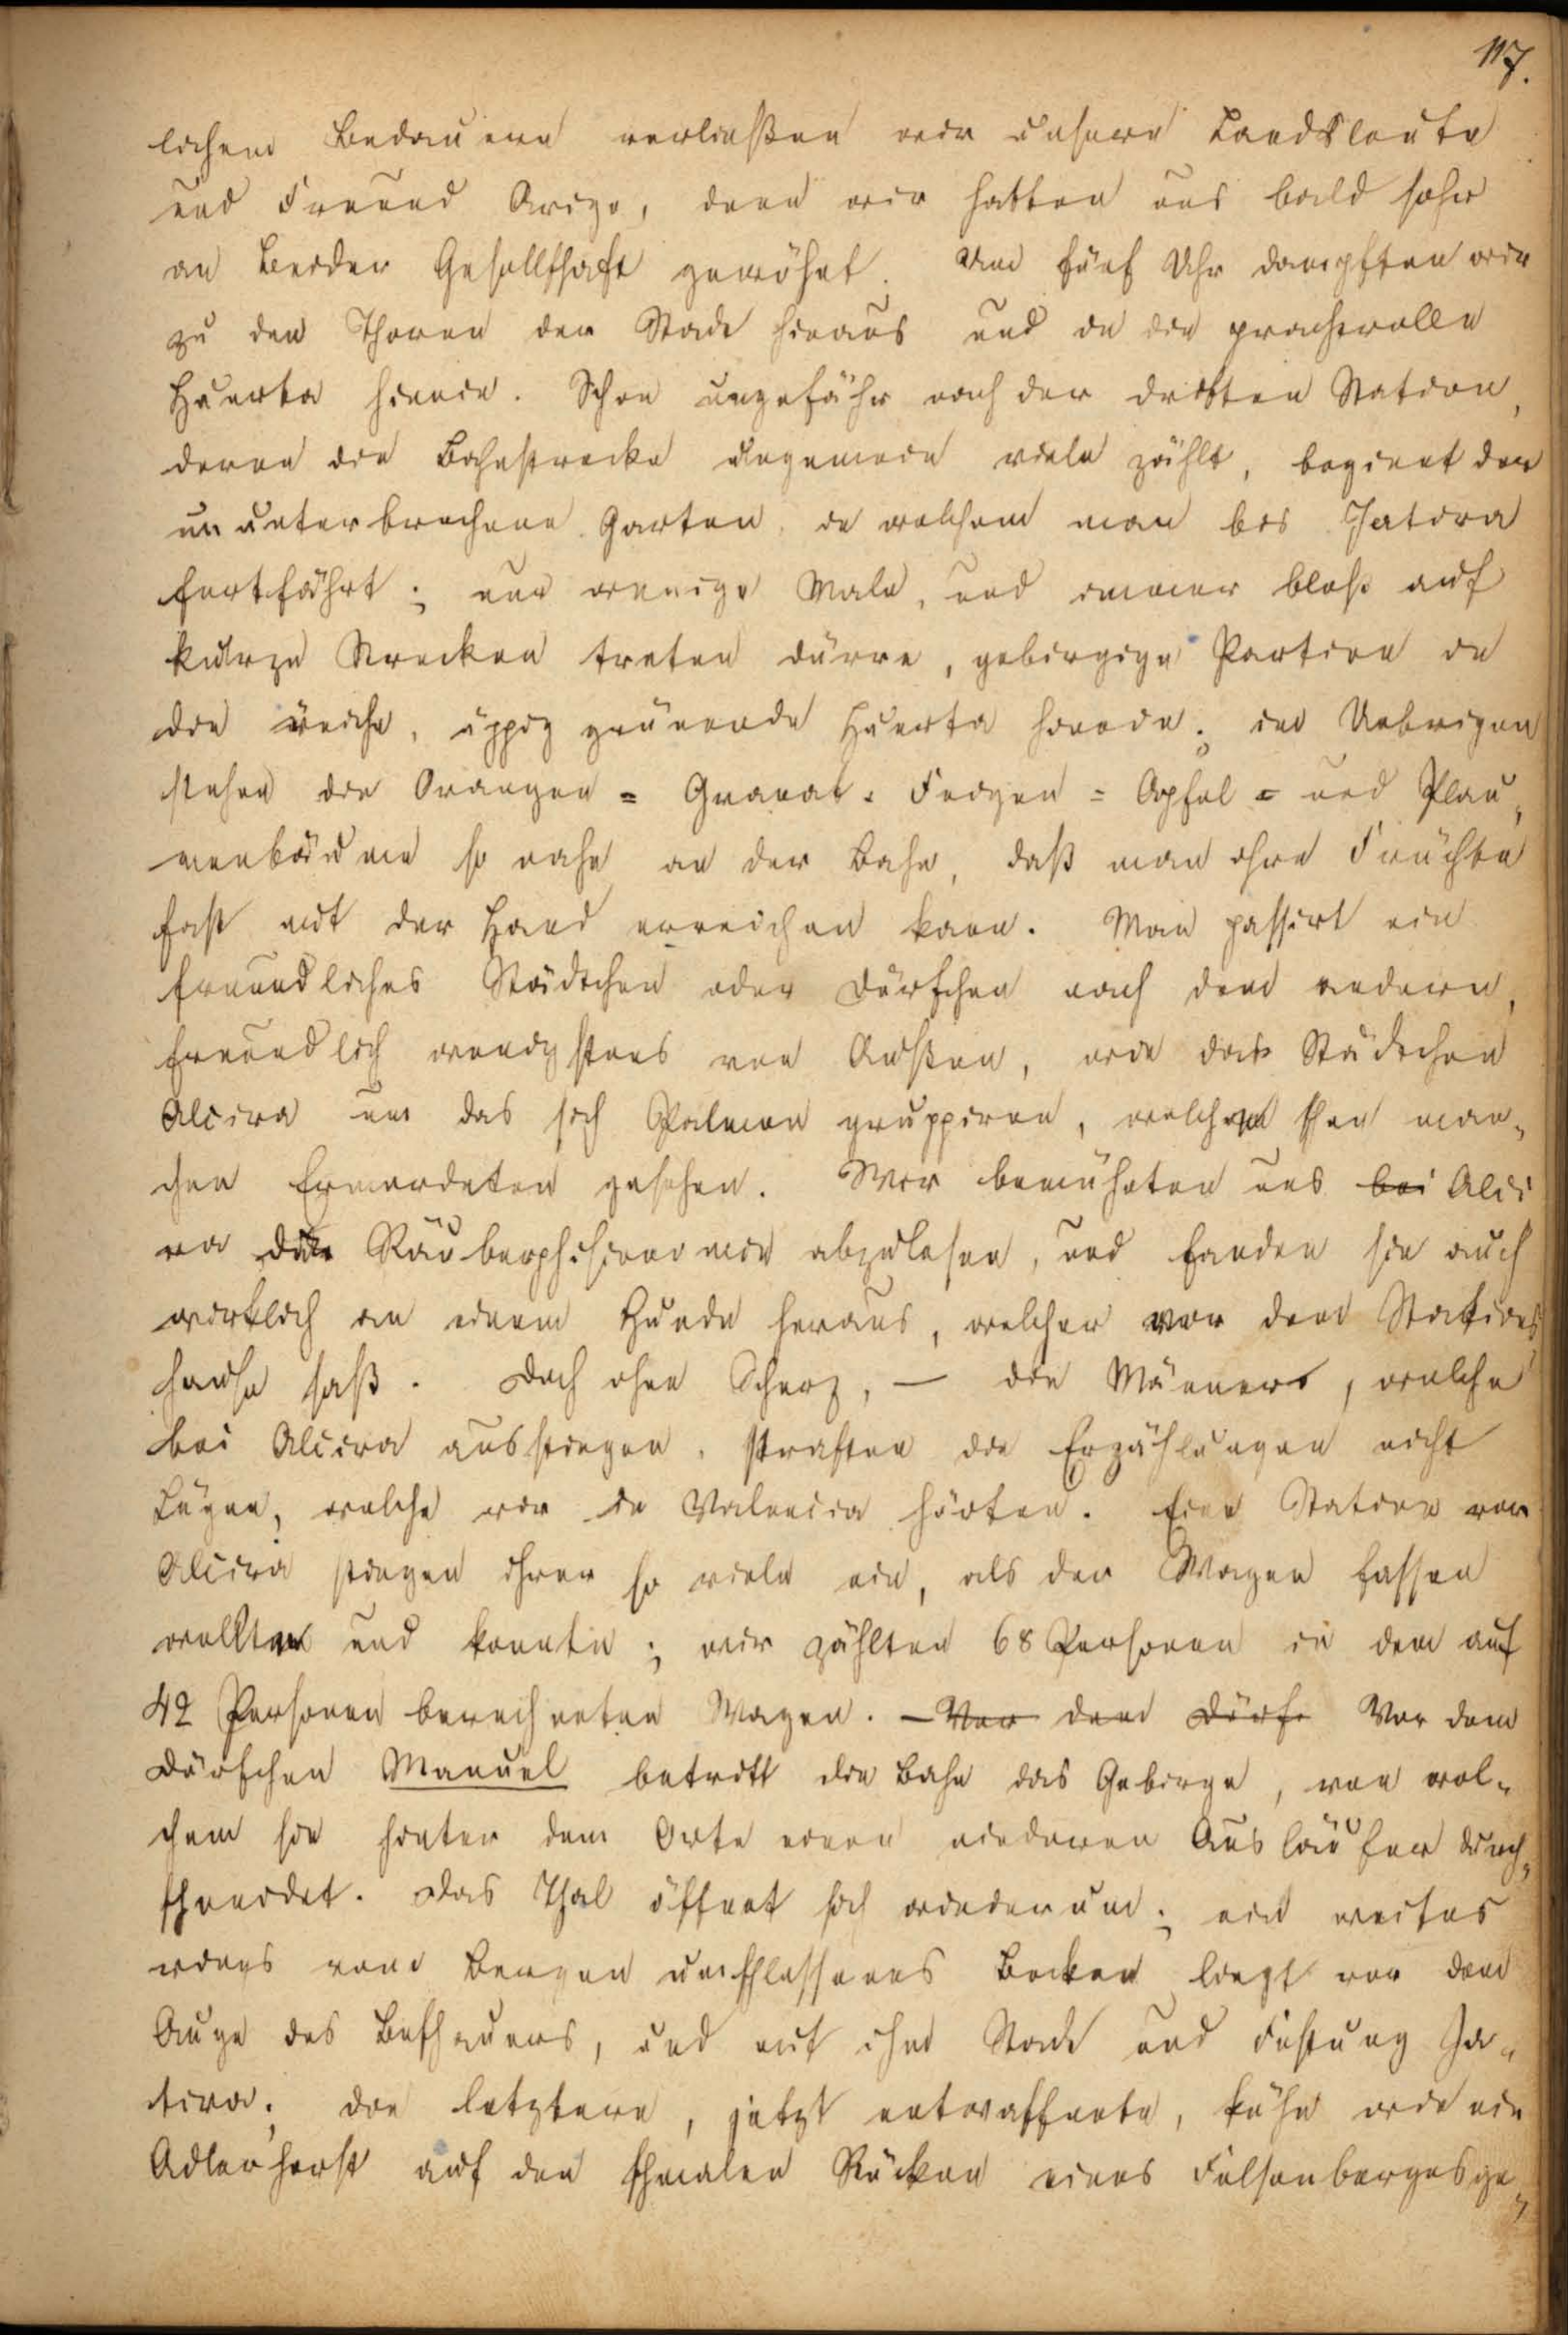 117.
lichem Bedauern verließen wir unsere Landsleute
und Freund Arigo, denn wir hatten uns bald sehr
an Beider Gesellschaft gewöhnt. Um fünf Uhr dampften wir
zu den Thoren der Stadt hinaus und in die prachtvolle
Huerta hinein. Schon ungefähr nach der dritten Station,
deren die Bahnstrecke ungemein viele zählt, beginnt der
ununterbrochene Garten, in welchem man bis Jativa
fortfährt; nur wenige Male, und immer bloß auf
kurze Strecken treten dürre, gebirgige Partien in
die reiche, üppig grünende Huerta herein; im Uebrigen
stehen die Orangen= Granat= Feigen= Apfel= und Plau„
menbäume so nahe an der Bahn, daß man ihre Früchte
fast mit der Hand erreichen kann. Man passirt ein
freundliches Städtchen oder Dörfchen nach dem andern,
freundlich wenigstens von Außen, wie das Städtchen
Alcira um das sich Palmen gruppiren, welche schon man„
chen Ermordeten gesehen. Wir bemühten uns bei Alci
ra die Räuberphisionomie abzulesen, und fanden sie auch
wirklich an einem Hunde heraus, welcher vor dem Stations
hause saß. Doch ohne Scherz, — die Männer, welche
bei Alcira ausstiegen, straften die Erzählungen nicht
Lügen, welche wir in Valencia hörten. Eine Station von
Alcira stiegen ihrer so viele ein, als der Wagen fassen
wollte und konnte; wir zählten 68 Personen in dem auf
42 Personen berechneten Wagen. — Vor dem Dörf. Vor dem
Dörfchen Manuel betritt die Bahn das Gebirge, von wel„
chem sie hinter dem Orte einen niederen Ausläufer durch„
schneidet. Das Thal öffnet sich wiederum; ein weites
rings von Bergen umschlossenes Becken liegt vor dem
Auge des Beschauers, und mit ihm Stadt und Festung Ja„
tiva; die letztere, jetzt entwaffnete, kühn wie ein
Adlerhorst auf den schmalen Rücken eines Felsenberges ge„